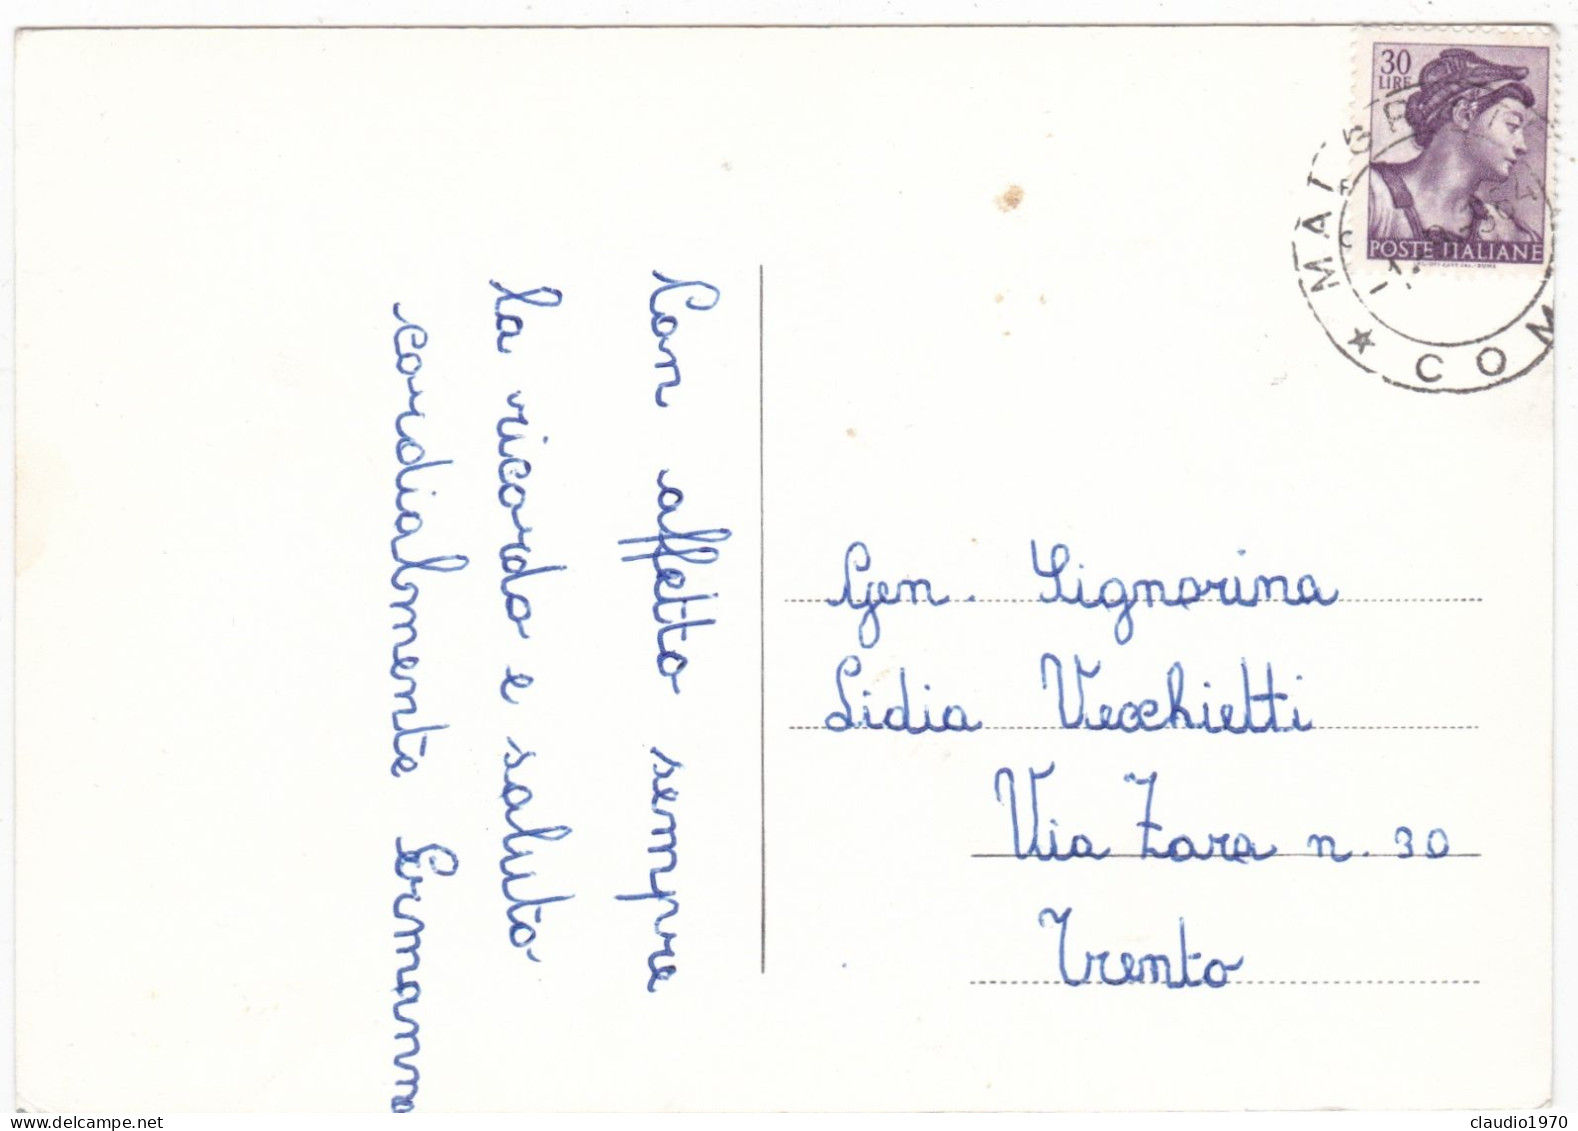 30
LIRE
POSTE ITALIANE
COM
Con affetto sempre
la ricordo e saluto
cordialmente Ermanna
Gen. Signorina
Lidia Vecchietti
Via Zara n. 30
Trento
claudio1970